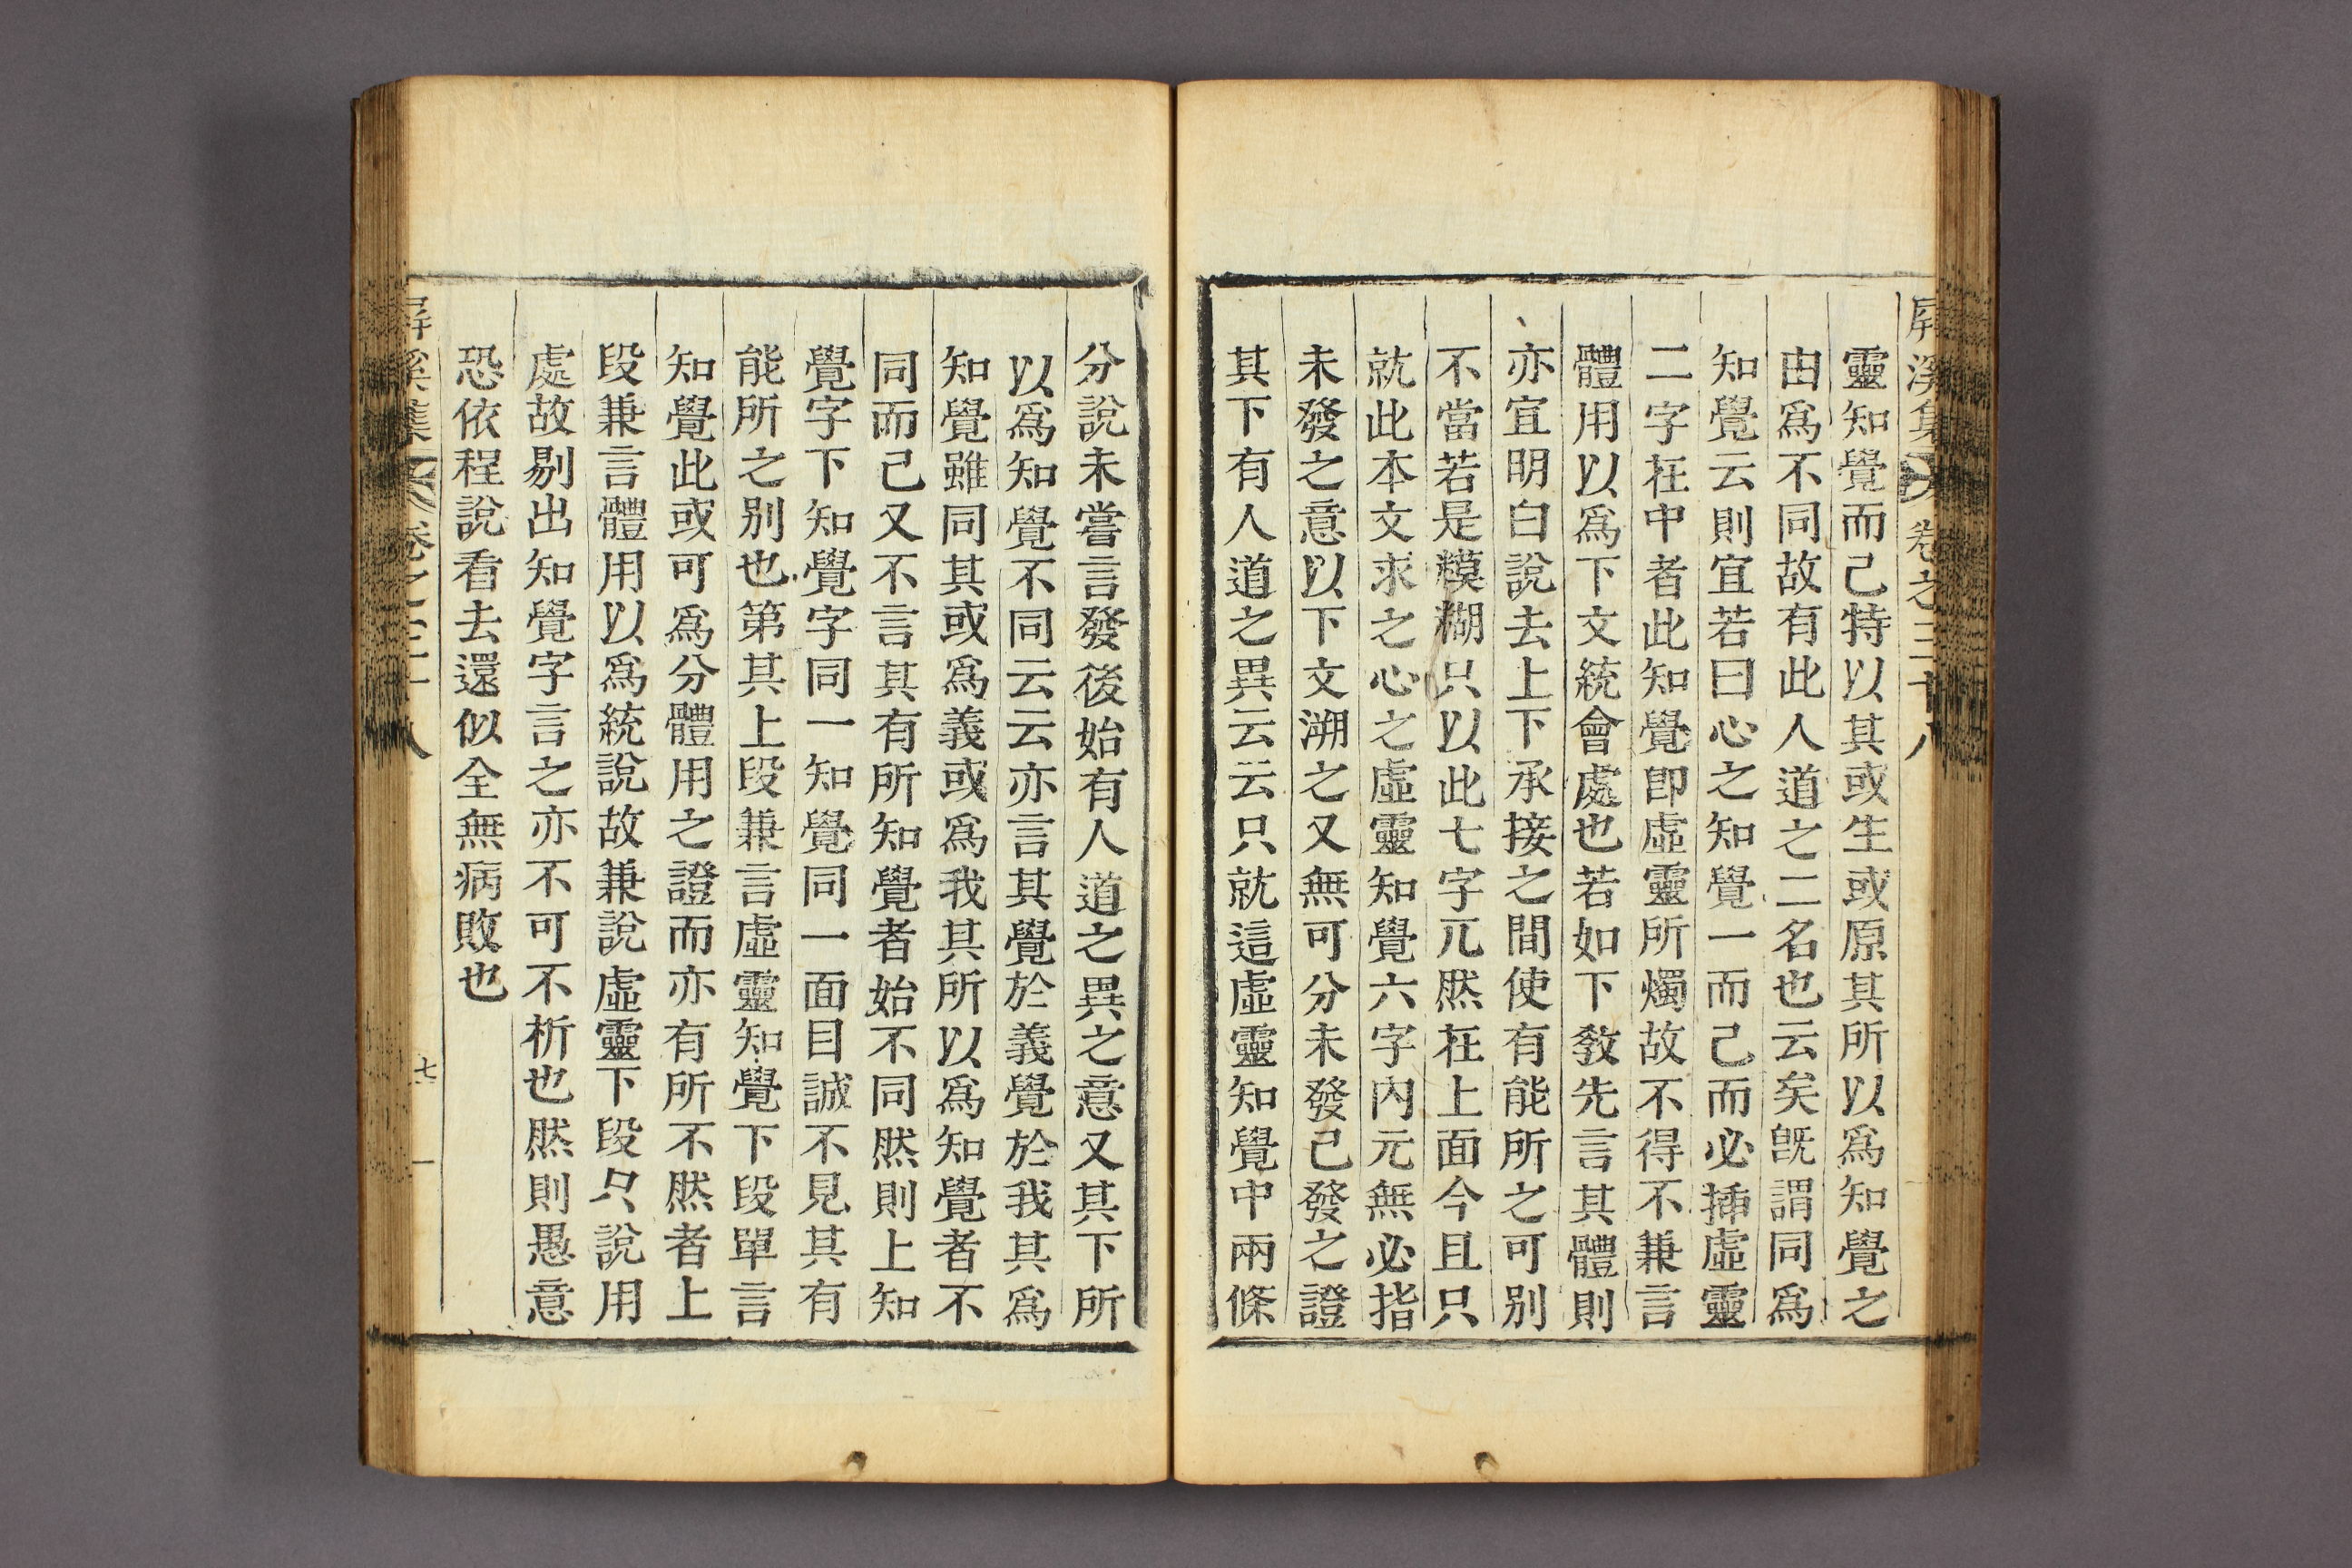 屛溪集 卷之三十八
靈知覺而已特以其或生或原其所以爲知覺之
由爲不同故有此人道之二名也云矣旣謂同爲
知覺云則宜若曰心之知覺一而已而必揷虛靈
二字在中者此知覺卽虛靈所燭故不得不兼言
體用以爲下文統會處也若如下敎先言其體則
亦宜明白說去上下承接之間使有能所之可別
不當若是糢糊只以此七字兀然在上面今且只
就此本文求之心之虛靈知覺六字內元無必指
未發之意以下文溯之又無可分未發已發之證
其下有人道之異云云只就這虛靈知覺中兩條
分說未嘗言發後始有人道之異之意又其下所
以爲知覺不同云云亦言其覺於義覺於我其爲
知覺雖同其或爲義或爲我其所以爲知覺者不
同而已又不言其有所知覺者始不同然則上知
覺字下知覺字同一知覺同一面目誠不見其有
能所之別也第其上段兼言虛靈知覺下段單言
知覺此或可爲分體用之證而亦有所不然者上
段兼言體用以爲統說故兼說虛靈下段只說用
處故剔出知覺字言之亦不可不析也然則愚意
恐依程說看去還似全無病敗也
屛溪集 卷之三十八 七 一